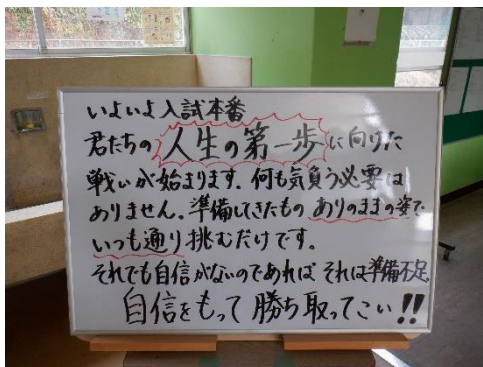 いよいよ入試本番
君たちの人生の第一歩に向けた
戦いが始まります。何も気負う必要は
ありません。準備してきたものありのままの姿で
いつも通り挑むだけです。
それでも自信がないのであればそれは準備不足
自信をもって勝ち取ってこい!!